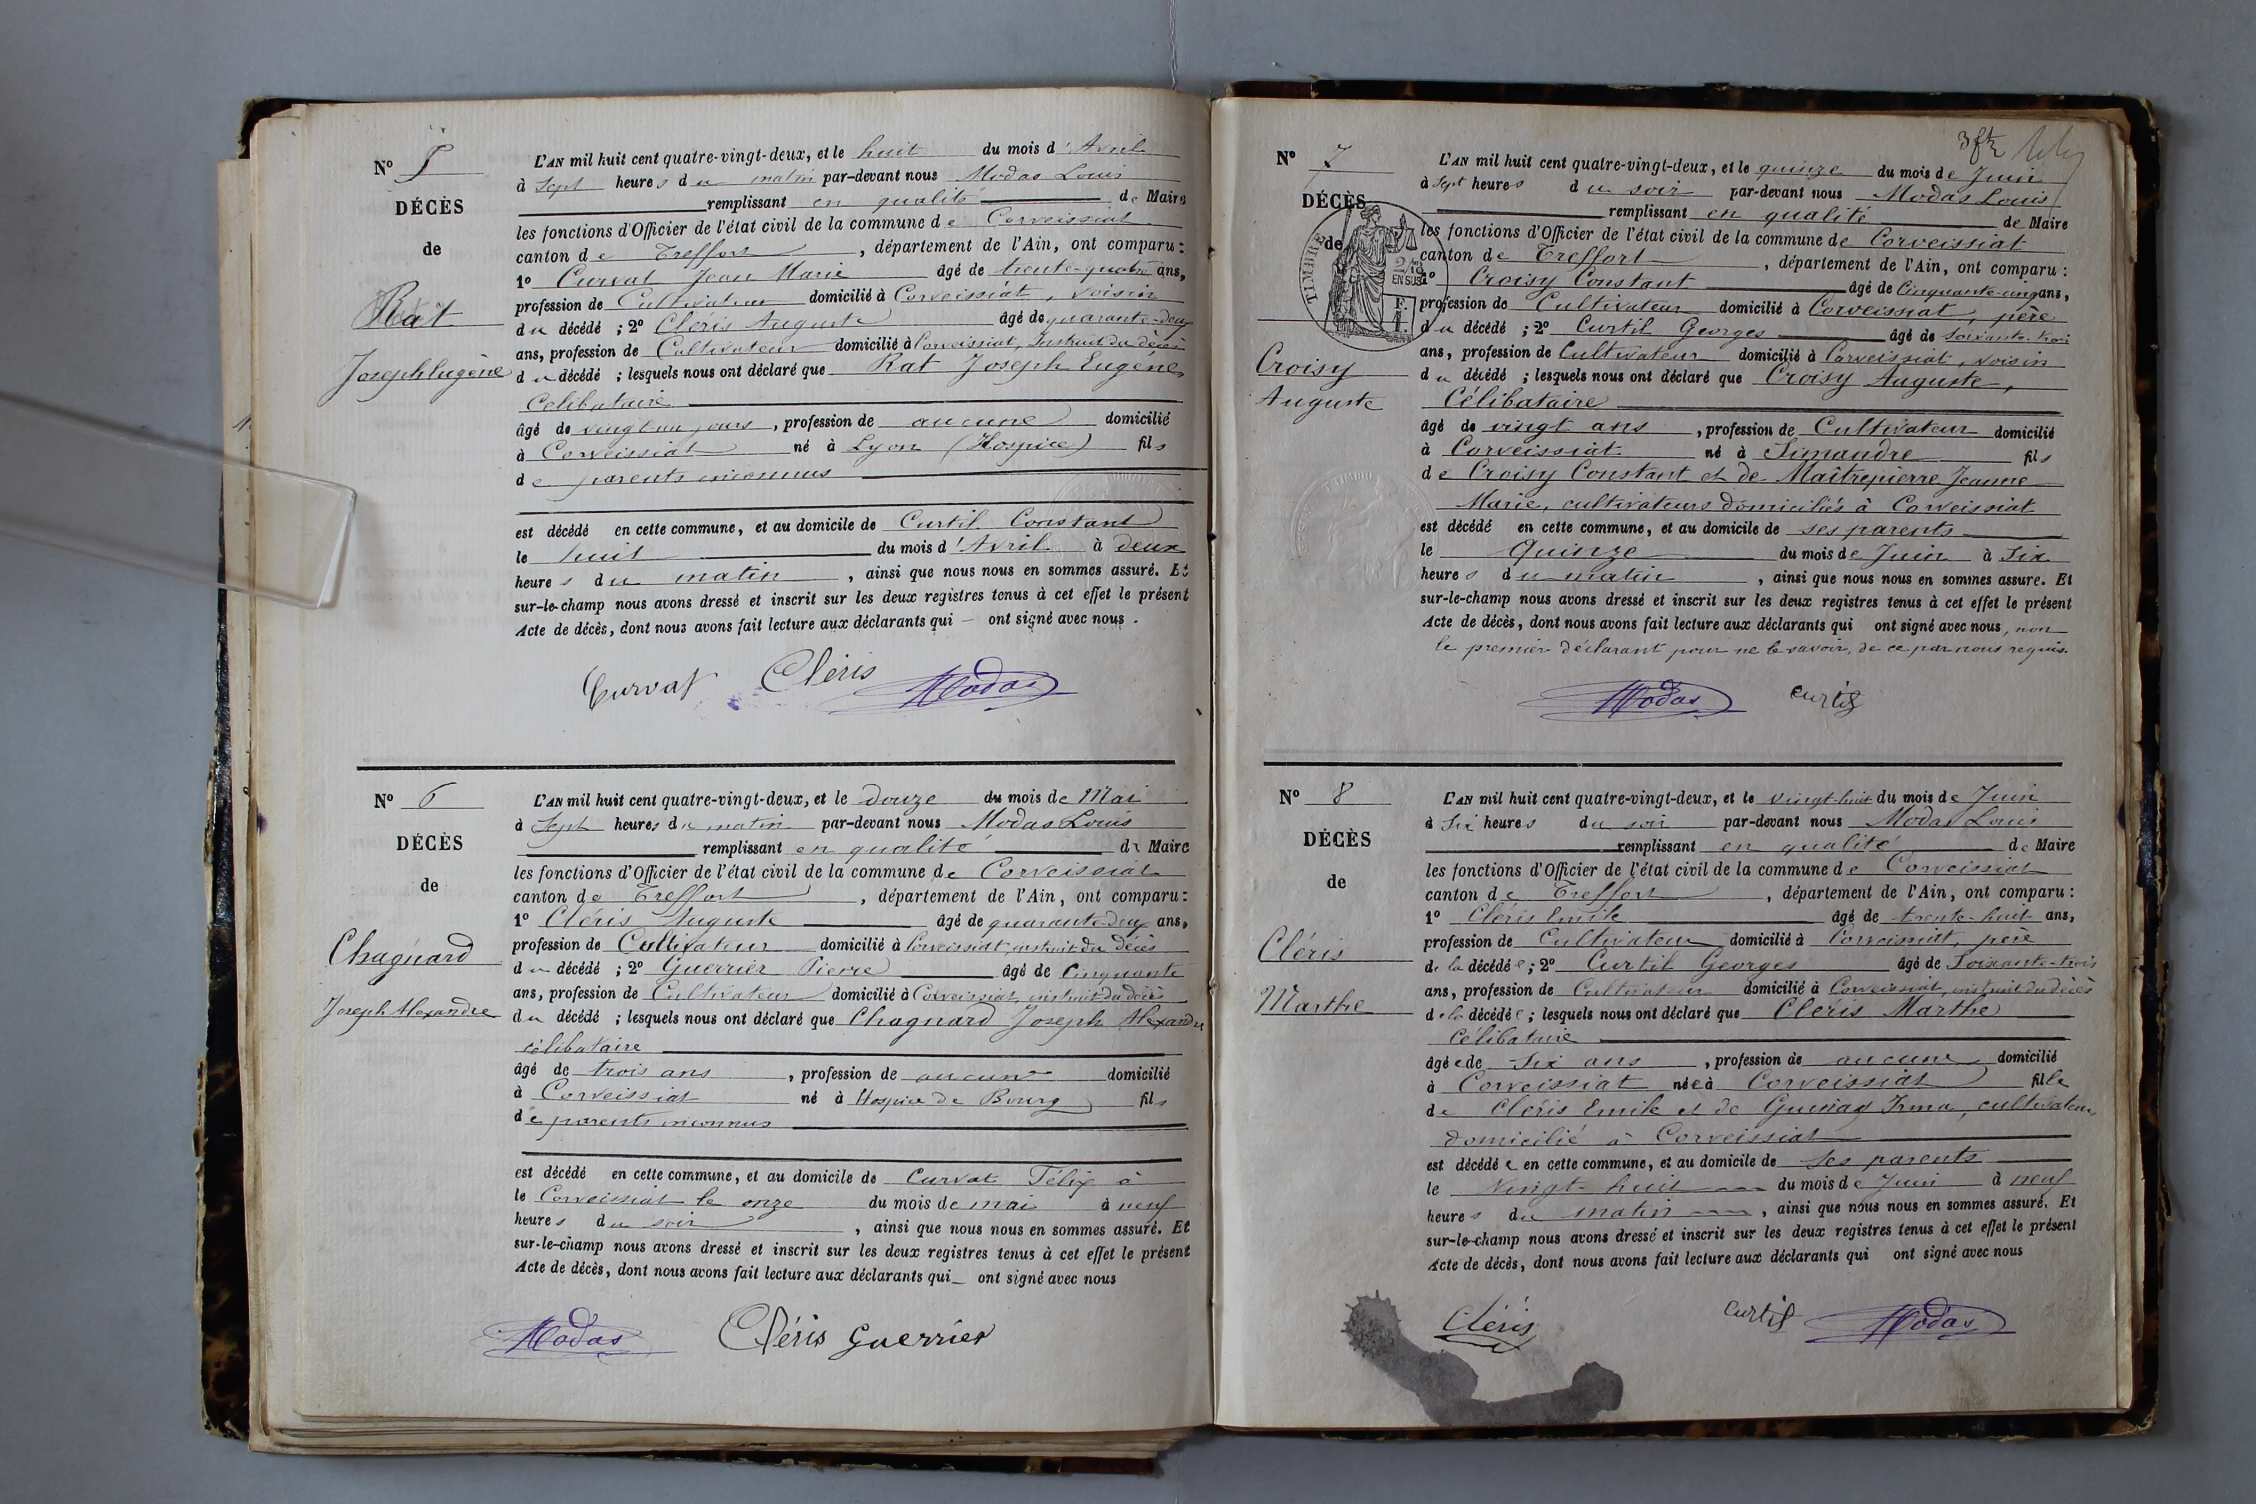 N° 5
DÉCÈS
de
Rat
Joseph Eugène
L'AN mil huit cent quatre-vingt-deux, et le huit du mois d'Avril
à Sept heures du matin par-devant nous Modas Louis
remplissant en qualité de Maire
les fonctions d'Officier de l'état civil de la commune de Corveissiat
canton de Treffort, département de l'Ain, ont comparu :
1° Curvat Jean Marie âgé de trente-quatre ans,
profession de Cultivateur domicilié à Corveissiat, voisin
du décédé ; 2° Cléris Auguste âgé de quarante-deux
ans, profession de Cultivateur domicilié à Corveissiat, instruit du décès
du décédé ; lesquels nous ont déclaré que Rat Joseph Eugène,
Célibataire
âgé de vingt un jours, profession de aucune domicilié
à Corveissiat né à Lyon (Hospice) fils
de parents inconnus
est décédé en cette commune, et au domicile de Curtil Constant
le huit du mois d'Avril à deux
heures du matin, ainsi que nous nous en sommes assuré. Et
sur-le-champ nous avons dressé et inscrit sur les deux registres tenus à cet effet le présent
Acte de décès, dont nous avons fait lecture aux déclarants qui — ont signé avec nous.
Curvat Cléris Modas
N° 6
DÉCÈS
de
Chagnard
Joseph Alexandre
L'AN mil huit cent quatre-vingt-deux, et le douze du mois de Mai
à Sept heures du matin par-devant nous Modas Louis
remplissant en qualité de Maire
les fonctions d'Officier de l'état civil de la commune de Corveissiat
canton de Treffort, département de l'Ain, ont comparu :
1° Cléris Auguste âgé de quarante-deux ans,
profession de Cultivateur domicilié à Corveissiat, instruit du décès
du décédé ; 2° Guerrier Pierre âgé de Cinquante
ans, profession de Cultivateur domicilié à Corveissiat, instruit du décès
du décédé ; lesquels nous ont déclaré que Chagnard Joseph Alexandre
célibataire
âgé de trois ans, profession de aucune domicilié
à Corveissiat né à Hospice de Bourg fils
de parents inconnus
est décédé en cette commune, et au domicile de Curvat Félix à
le Corveissiat le onze du mois de mai à neuf
heures du soir, ainsi que nous nous en sommes assuré. Et
sur-le-champ nous avons dressé et inscrit sur les deux registres tenus à cet effet le présent
Acte de décès, dont nous avons fait lecture aux déclarants qui — ont signé avec nous
Modas Cléris Guerrier
N° 7
DÉCÈS
de
TIMBRE
2/10 EN SUS
Croisy
Auguste
L'AN mil huit cent quatre-vingt-deux, et le quinze du mois de Juin
à Sept heures du soir par-devant nous Modas Louis
remplissant en qualité de Maire
les fonctions d'Officier de l'état civil de la commune de Corveissiat
canton de Treffort, département de l'Ain, ont comparu :
1° Croisy Constant âgé de Cinquante-cinq ans,
profession de Cultivateur domicilié à Corveissiat, père
du décédé ; 2° Curtil Georges âgé de Soixante-trois
ans, profession de Cultivateur domicilié à Corveissiat, voisin
du décédé ; lesquels nous ont déclaré que Croisy Auguste,
Célibataire
âgé de vingt ans, profession de Cultivateur domicilié
à Corveissiat né à Simandre fils
de Croisy Constant et de Maîtrepierre Jeanne
Marie, cultivateurs domiciliés à Corveissiat
est décédé en cette commune, et au domicile de ses parents
le Quinze du mois de Juin à Six
heures du matin, ainsi que nous nous en sommes assuré. Et
sur-le-champ nous avons dressé et inscrit sur les deux registres tenus à cet effet le présent
Acte de décès, dont nous avons fait lecture aux déclarants qui ont signé avec nous, non
le premier déclarant pour ne le savoir, de ce par nous requis.
Modas Curtil
N° 8
DÉCÈS
de
Cléris
Marthe
L'AN mil huit cent quatre-vingt-deux, et le vingt-huit du mois de Juin
à Six heures du soir par-devant nous Modas Louis
remplissant en qualité de Maire
les fonctions d'Officier de l'état civil de la commune de Corveissiat
canton de Treffort, département de l'Ain, ont comparu :
1° Cléris Emile âgé de trente-huit ans,
profession de Cultivateur domicilié à Corveissiat, père
de la décédée ; 2° Curtil Georges âgé de Soixante-trois
ans, profession de Cultivateur domicilié à Corveissiat, instruit du décès
de la décédée ; lesquels nous ont déclaré que Cléris Marthe
Célibataire
âgée de Six ans, profession de aucune domicilié
à Corveissiat née à Corveissiat fille
de Cléris Emile et de Irma, cultivateurs
domicilié à Corveissiat
est décédée en cette commune, et au domicile de ses parents
le Vingt-huit du mois de Juin à neuf
heures du matin, ainsi que nous nous en sommes assuré. Et
sur-le-champ nous avons dressé et inscrit sur les deux registres tenus à cet effet le présent
Acte de décès, dont nous avons fait lecture aux déclarants qui ont signé avec nous
Cléris Curtil Modas